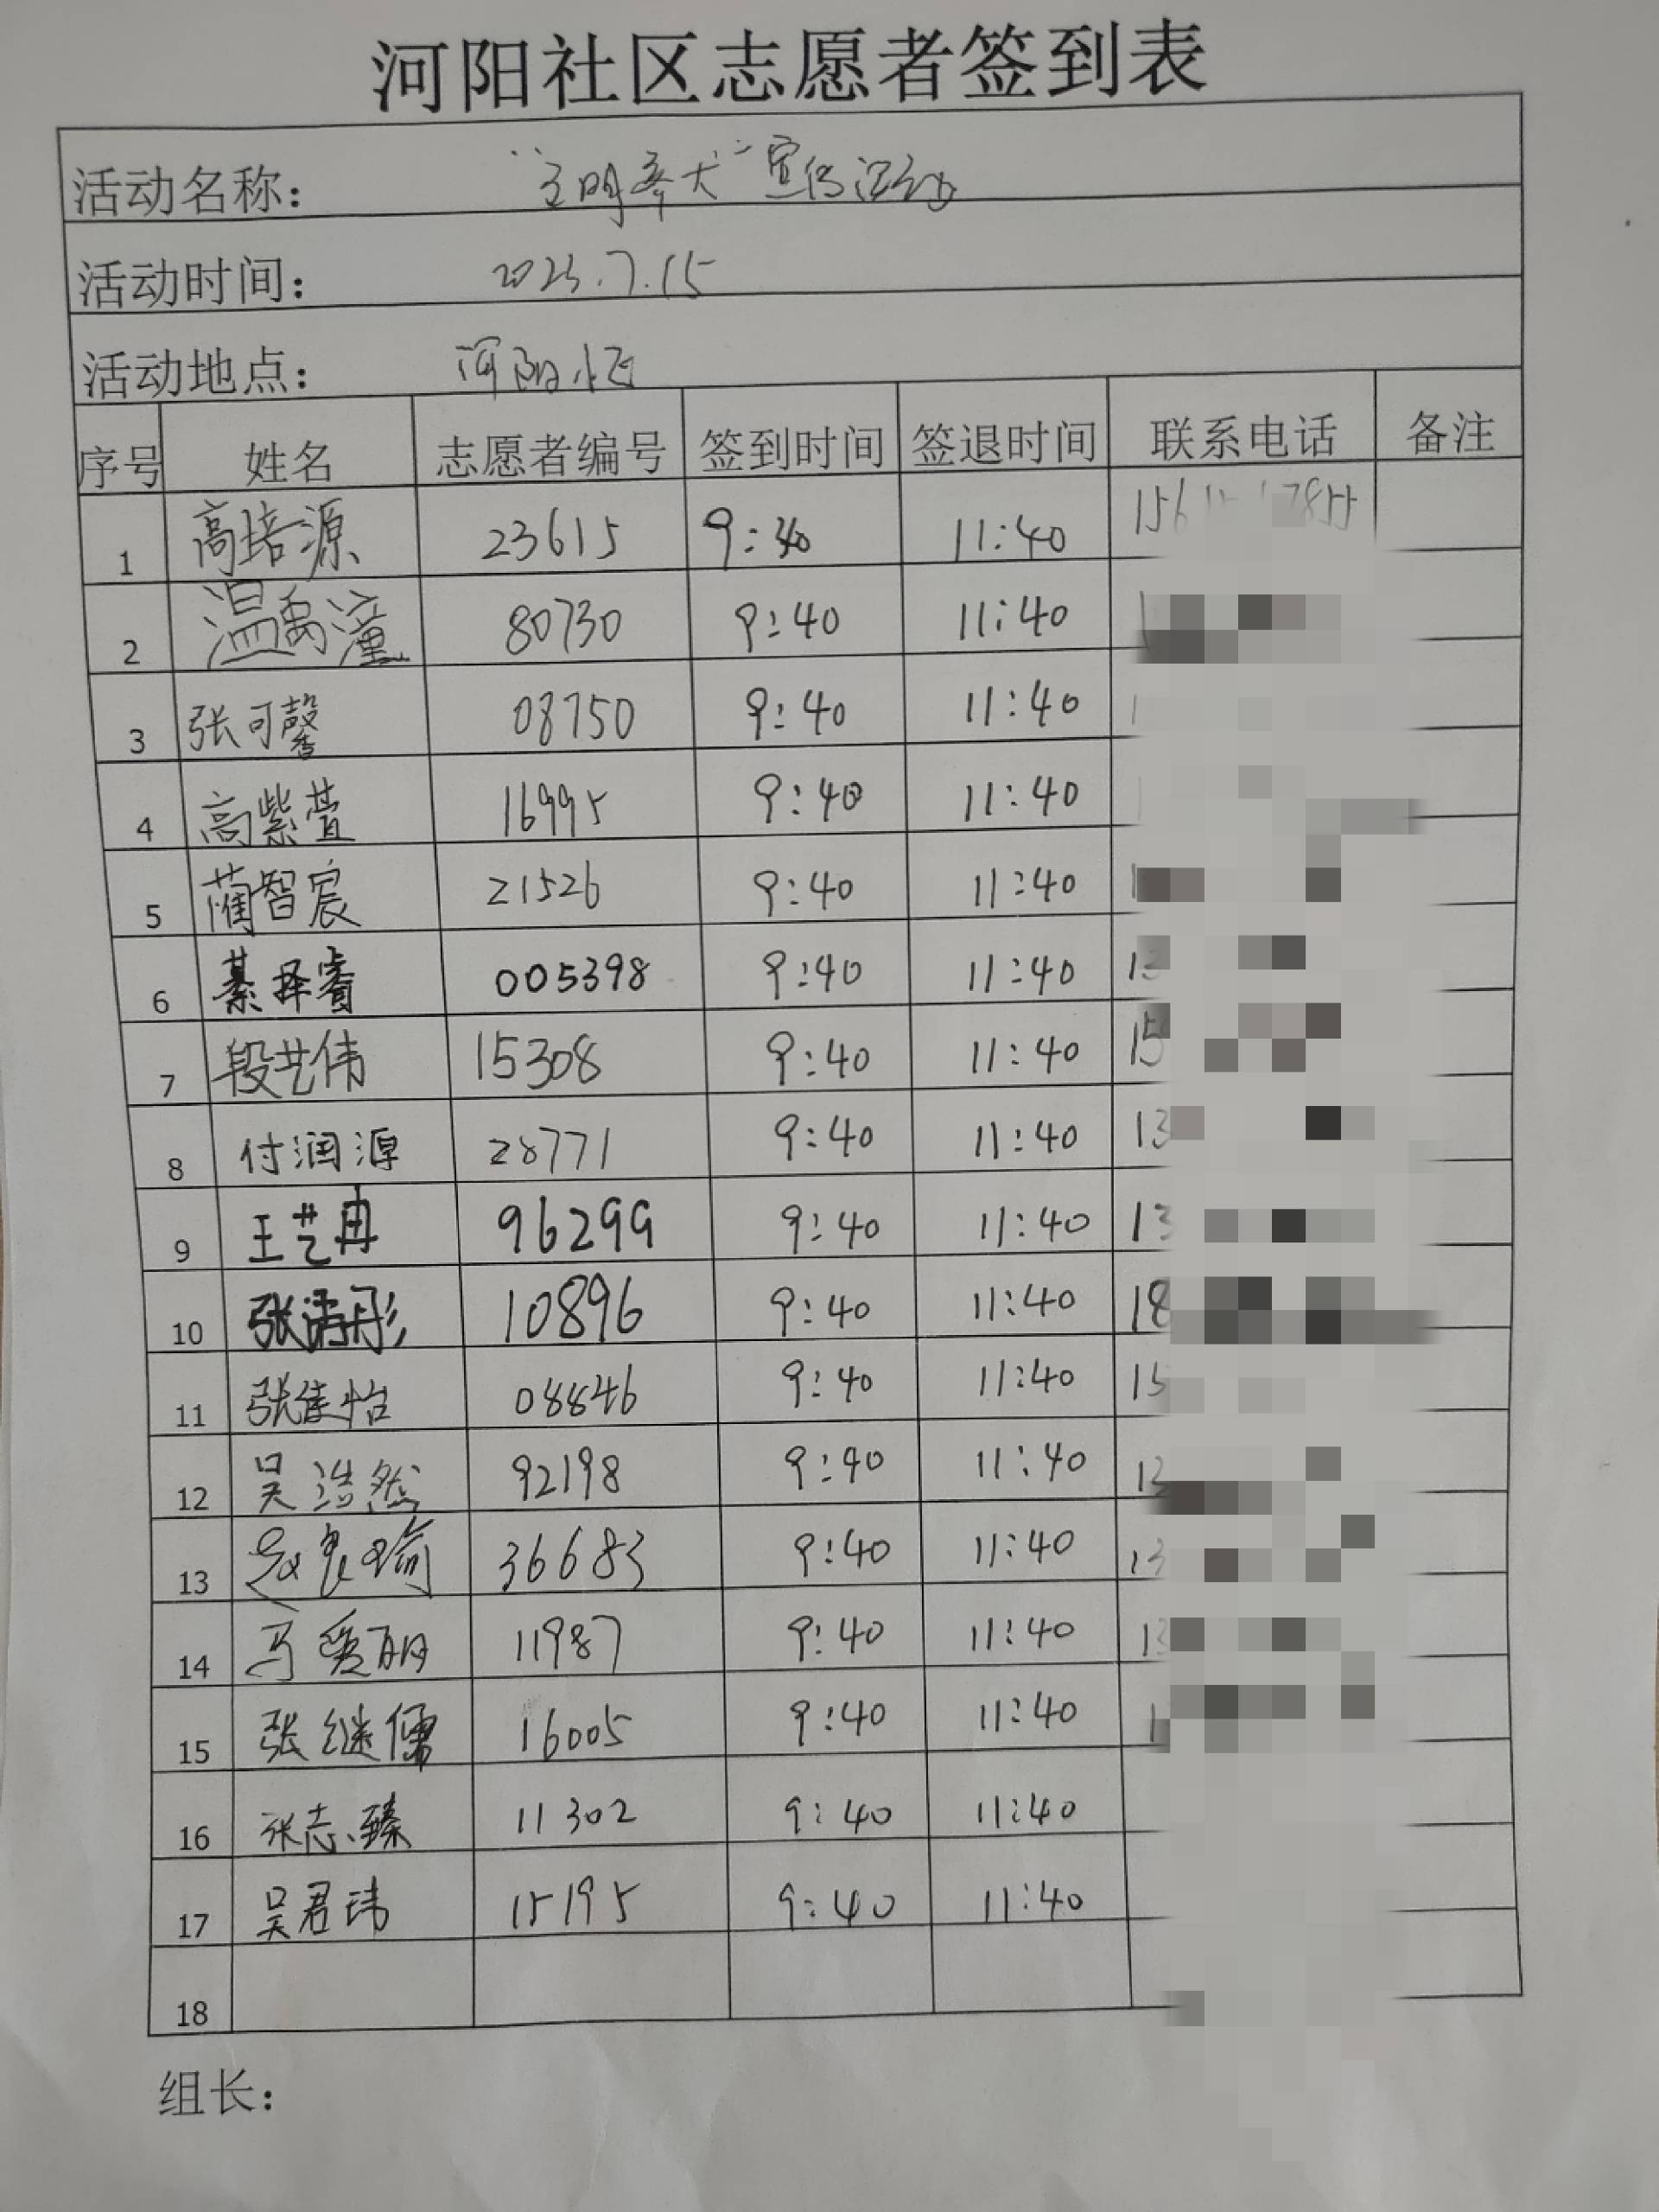 河阳社区志愿者签到表
活动名称： “文明养犬”宣传活动
活动时间： 2023.7.15
活动地点： 河阳小区
序号 姓名 志愿者编号 签到时间 签退时间 联系电话 备注
1 高培源 23615 9:40 11:40
2 温禹潼 80730 9:40 11:40
3 张可馨 08750 9:40 11:40
4 高紫萱 16995 9:40 11:40
5 蔺智宸 21526 9:40 11:40
6 綦择睿 005398 9:40 11:40
7 段艺伟 15308 9:40 11:40
8 付润源 28771 9:40 11:40
9 王艺冉 96299 9:40 11:40
10 张清彤 10896 9:40 11:40
11 张佳怡 08846 9:40 11:40
12 吴浩然 92198 9:40 11:40
13 赵良瑜 36683 9:40 11:40
14 马爱丽 11987 9:40 11:40
15 张继儒 16005 9:40 11:40
16 张志臻 11302 9:40 11:40
17 吴君玮 15195 9:40 11:40
18
组长：